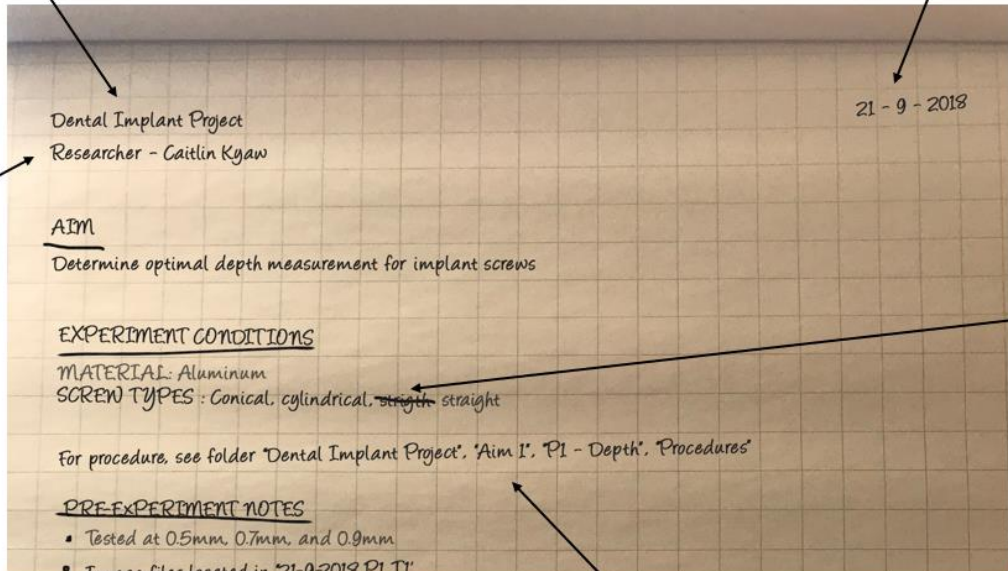 Dental Implant Project
21 - 9 - 2018
Researcher - Caitlin Kyaw
AIM
Determine optimal depth measurement for implant screws
EXPERIMENT CONDITIONS
MATERIAL: Aluminum
SCREW TYPES : Conical, cylindrical, strigth straight
For procedure, see folder "Dental Implant Project", "Aim 1", "P1 - Depth", "Procedures"
PRE-EXPERIMENT NOTES
• Tested at 0.5mm, 0.7mm, and 0.9mm
• Image files located in "21-9-2018 P1 T1"